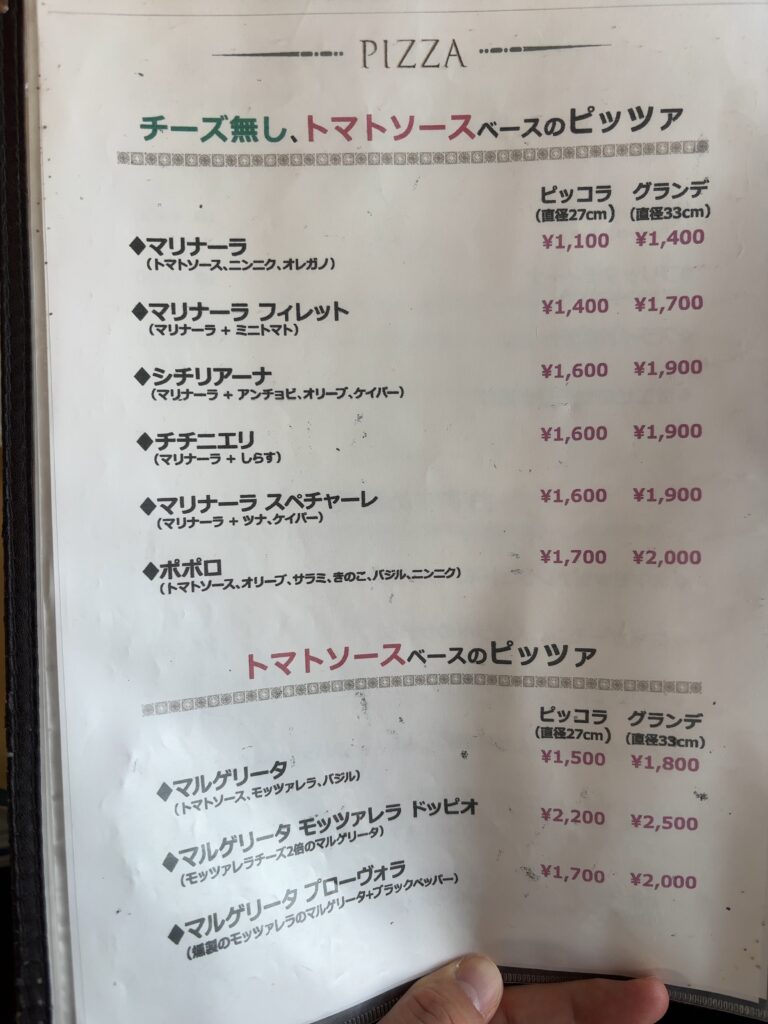 PIZZA
チーズ無し、トマトソースベースのピッツァ
ピッコラ グランデ
(直径27cm) (直径33cm)
◆マリナーラ ¥1,100 ¥1,400
(トマトソース、ニンニク、オレガノ)
◆マリナーラ フィレット ¥1,400 ¥1,700
(マリナーラ + ミニトマト)
◆シチリアーナ ¥1,600 ¥1,900
(マリナーラ + アンチョビ、オリーブ、ケイパー)
◆チチニエリ ¥1,600 ¥1,900
(マリナーラ + しらす)
◆マリナーラ スペチャーレ ¥1,600 ¥1,900
(マリナーラ + ツナ、ケイパー)
◆ポポロ ¥1,700 ¥2,000
(トマトソース、オリーブ、サラミ、きのこ、バジル、ニンニク)
トマトソースベースのピッツァ
ピッコラ グランデ
(直径27cm) (直径33cm)
◆マルゲリータ ¥1,500 ¥1,800
(トマトソース、モッツァレラ、バジル)
◆マルゲリータ モッツァレラ ドッピオ ¥2,200 ¥2,500
(モッツァレラチーズ2倍のマルゲリータ)
◆マルゲリータ プローヴォラ ¥1,700 ¥2,000
(燻製のモッツァレラのマルゲリータ+ブラックペッパー)